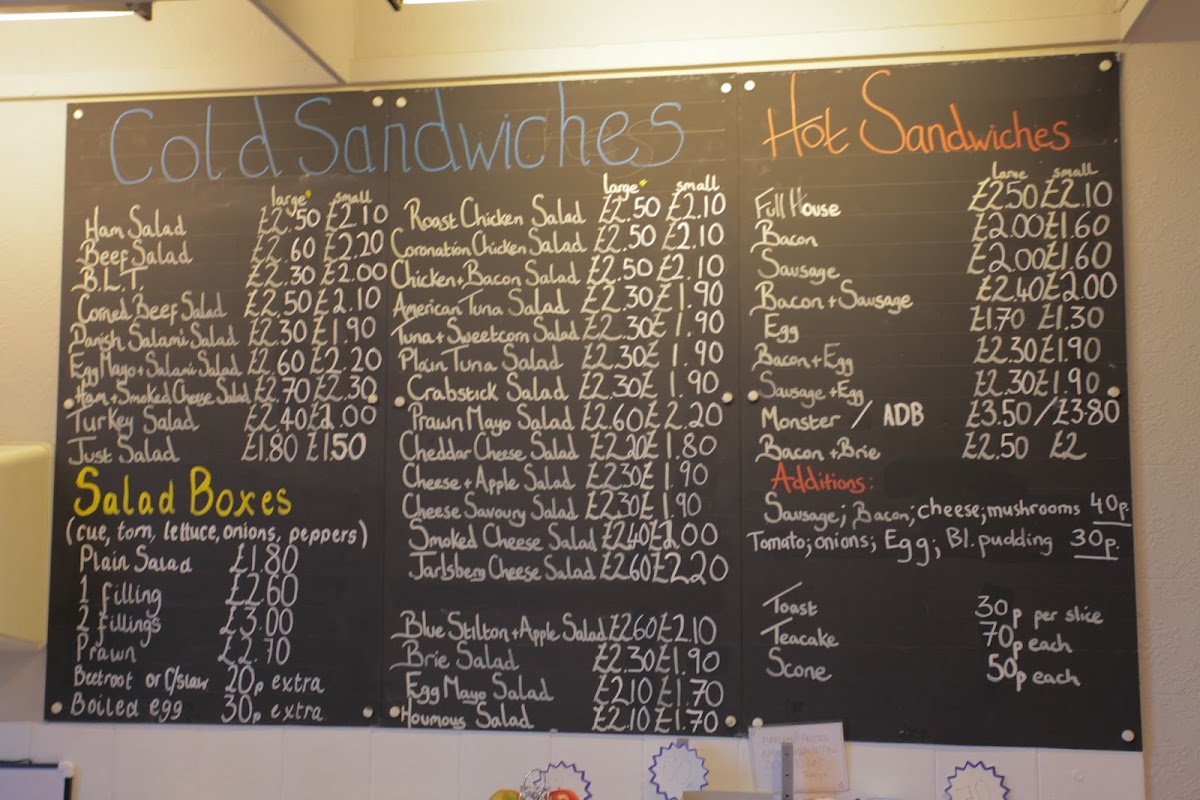 Cold Sandwiches
large* small
Ham Salad £2.50 £2.10
Beef Salad £2.60 £2.20
B.L.T. £2.30 £2.00
Corned Beef Salad £2.50 £2.10
Danish Salami Salad £2.30 £1.90
Egg Mayo + Salami Salad £2.60 £2.20
Ham + Smoked Cheese Salad £2.70 £2.30
Turkey Salad £2.40 £2.00
Just Salad £1.80 £1.50
Salad Boxes
(cue, tom, lettuce, onions, peppers)
Plain Salad £1.80
1 filling £2.60
2 fillings £3.00
Prawn £2.70
Beetroot or C/slaw 20p extra
Boiled egg 30p extra
large* small
Roast Chicken Salad £2.50 £2.10
Coronation Chicken Salad £2.50 £2.10
Chicken + Bacon Salad £2.50 £2.10
American Tuna Salad £2.30 £1.90
Tuna + Sweetcorn Salad £2.30 £1.90
Plain Tuna Salad £2.30 £1.90
Crabstick Salad £2.30 £1.90
Prawn Mayo Salad £2.60 £2.20
Cheddar Cheese Salad £2.20 £1.80
Cheese + Apple Salad £2.30 £1.90
Cheese Savoury Salad £2.30 £1.90
Smoked Cheese Salad £2.40 £2.00
Jarlsberg Cheese Salad £2.60 £2.20
Blue Stilton + Apple Salad £2.60 £2.10
Brie Salad £2.30 £1.90
Egg Mayo Salad £2.10 £1.70
Houmous Salad £2.10 £1.70
Hot Sandwiches
large small
Full House £2.50 £2.10
Bacon £2.00 £1.60
Sausage £2.00 £1.60
Bacon + Sausage £2.40 £2.00
Egg £1.70 £1.30
Bacon + Egg £2.30 £1.90
Sausage + Egg £2.30 £1.90
Monster / ADB £3.50 / £3.80
Bacon + Brie £2.50 £2
Additions:
Sausage; Bacon; cheese; mushrooms 40p.
Tomato; onions; Egg; Bl. pudding 30p.
Toast 30p per slice
Teacake 70p each
Scone 50p each